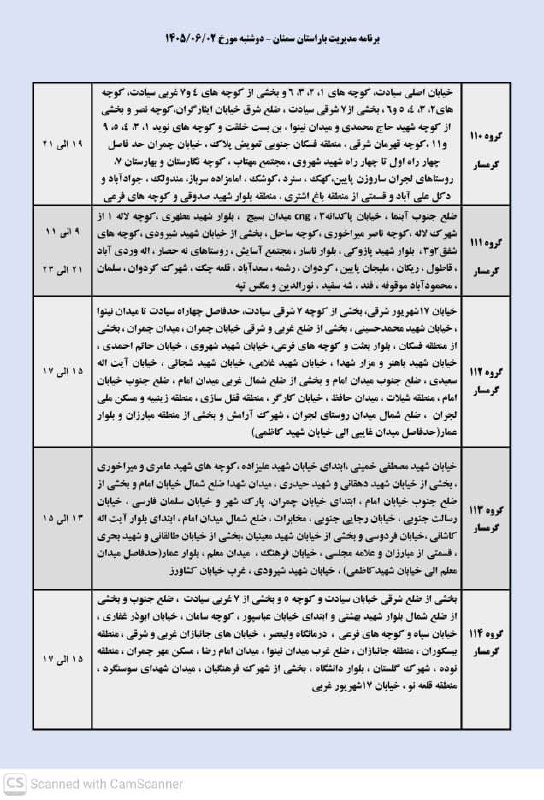 برنامه مدیریت بار استان سمنان - دوشنبه مورخ ۱۴۰۵/۰۶/۰۲
گروه ۱۱۰ گرمسار
خیابان اصلی سیادت، کوچه های ۱، ۲، ۳، ۶ و بخشی از کوچه های ۴ و۷ غربی سیادت، کوچه
های۲، ۳، ۴، ۵ و۶ ، بخشی از۷ شرقی سیادت ، ضلع شرق خیابان ایثارگران، کوچه نصر و بخشی
از کوچه شهید حاج محمدی و میدان نینوا ، بن بست خلقت و کوچه های نوید ۱، ۳، ۴، ۵، ۹
و۱۱ ،کوچه قهرمان شرقی ، منطقه فسکان جنوبی تعویض پلاک ، خیابان چمران حد فاصل
چهار راه اول تا چهار راه شهید شهروی ، مجتمع مهتاب ، کوچه نگارستان و بهارستان ۷،
روستاهای لجران ساروزن پایین،کهک ، سنرد ،کوشک ، امامزاده سرباز، مندولک ، جوادآباد و
دکل علی آباد و قسمتی از منطقه باغ اشتری ، منطقه بلوار شهید صدوقی و کوچه های فرعی
۱۹ الی ۲۱
گروه ۱۱۱ گرمسار
ضلع جنوب آبنما ، خیابان پاکدانه۲ ، cng میدان بسیج ، بلوار شهید مطهری ،کوچه لاله ۱ از
شهرک لاله ،کوچه ناصر میراخوری ،کوچه ساحل ، بخشی از خیابان شهید شیرودی ،کوچه های
شفق۲و۳، بلوار شهید پازوکی ، بلوار ناسار ، مجتمع آسایش ، روستاهای نه حصار ، اله وردی آباد
، قاطول ، ریکان ، ملیجان پایین، کردوان ، رشمه ، سعدآباد ، قلعه جگ ، شهرک کردوان ، سلمان
، محمودآباد موقوفه ، فند ، شه سفید ، نورالدین و مگس تپه
۹ الی ۱۱
۲۱ الی ۲۳
گروه ۱۱۲ گرمسار
خیابان ۱۷شهریور شرقی، بخشی از کوچه ۷ شرقی سیادت، حدفاصل چهاراه سیادت تا میدان نینوا
، خیابان شهید محمدحسینی ، بخشی از ضلع غربی و شرقی خیابان چمران، میدان چمران ، بخشی
از منطقه فسکان ، بلوار بعثت و کوچه های فرعی، خیابان شهید شهروی ، خیابان حاتم احمدی ،
خیابان شهید باهنر و مزار شهدا ، خیابان شهید غلامی، خیابان شهید شجاعی ، خیابان آیت اله
سعیدی ، ضلع جنوب میدان امام و بخشی از ضلع شمال غربی میدان امام ، ضلع جنوب خیابان
امام ، منطقه شیلات ، میدان حافظ ، خیابان کارگر ، منطقه قفل سازی ، منطقه زینبیه و مسکن ملی
لجران ، ضلع شمال میدان روستای لجران ، شهرک آرامش و بخشی از منطقه مبارزان و بلوار
عمار(حدفاصل میدان غایبی الی خیابان شهید کاظمی)
۱۵ الی ۱۷
گروه ۱۱۳ گرمسار
خیابان شهید مصطفی خمینی ،ابتدای خیابان شهید علیزاده ،کوچه های شهید عامری و میراخوری
، بخشی از خیابان شهید دهقانی و شهید حیدری ، میدان شهدا ضلع شمال خیابان امام و بخشی از
ضلع جنوب خیابان امام ، ابتدای خیابان چمران، پارک شهر و خیابان سلمان فارسی ، خیابان
رسالت جنوبی ، خیابان رجایی جنوبی ، مخابرات ، ضلع شمال میدان امام ، ابتدای بلوار آیت اله
کاشانی ،خیابان فردوسی و بخشی از خیابان شهید معینیان ،بخشی از خیابان طالقانی و شهید بحری
، قسمتی از مبارزان و علامه مجلسی ، خیابان فرهنگ ، میدان معلم ، بلوار عمار(حدفاصل میدان
معلم الی خیابان شهیدکاظمی) ، خیابان شهید شیرودی ، غرب خیابان کشاورز
۱۳ الی ۱۵
گروه ۱۱۴ گرمسار
بخشی از ضلع شرقی خیابان سیادت و کوچه ۵ و بخشی از ۷ غربی سیادت ، ضلع جنوب و بخشی
از ضلع شمال بلوار شهید بهشتی و ابتدای خیابان عباسپور ، کوچه سامان ، خیابان ابوذر غفاری ،
خیابان سپاه و کوچه های فرعی ، درمانگاه ولیعصر ، خیابان های جانبازان غربی و شرقی ، منطقه
بیسکوران ، منطقه جانبازان ، ضلع غرب میدان نینوا ، میدان امام رضا ، مسکن مهر چمران ، منطقه
نوده ، شهرک گلستان ، بلوار دانشگاه ، بخشی از شهرک فرهنگیان ، میدان شهدای سوسنگرد ،
منطقه قلعه نو ، خیابان ۱۷شهریور غربی
۱۵ الی ۱۷
CS Scanned with CamScanner